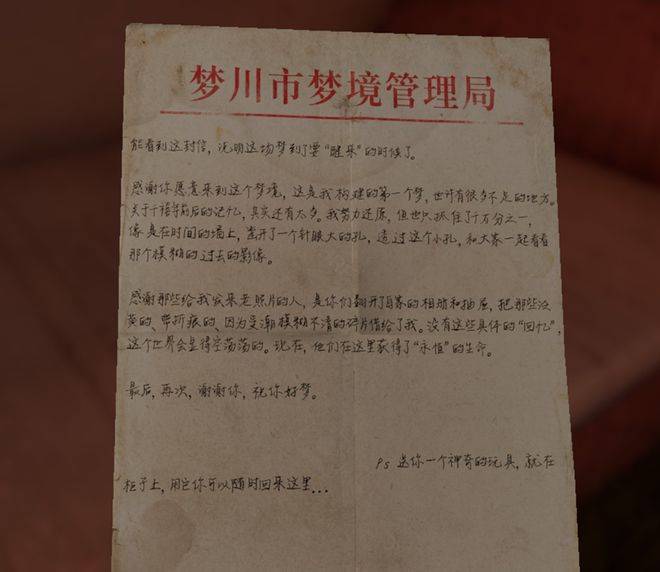 梦川市梦境管理局
能看到这封信，说明这场梦到了要“醒来”的时候了。
感谢你愿意来到这个梦境，这是我构建的第一个梦，也许有很多不足的地方。
关于千禧年前后的记忆，真实还有太多。我努力还原，但也只抓住了千万分之一，
像是在时间的墙上，凿开了一个针眼大的孔，透过这个小孔，和大家一起看看
那个模糊的过去的影像。
感谢那些给我发来老照片的人，是你们翻开了自家的相册和抽屉，把那些泛
黄的、带折痕的、因为受潮模糊不清的碎片借给了我。没有这些具体的“回忆”，
这个世界会显得空荡荡的。现在，他们在这里获得了“永恒”的生命。
最后，再次，谢谢你，祝你好梦。
Ps 送你一个神奇的玩具，就在
柜子上，用它你可以随时回来这里...